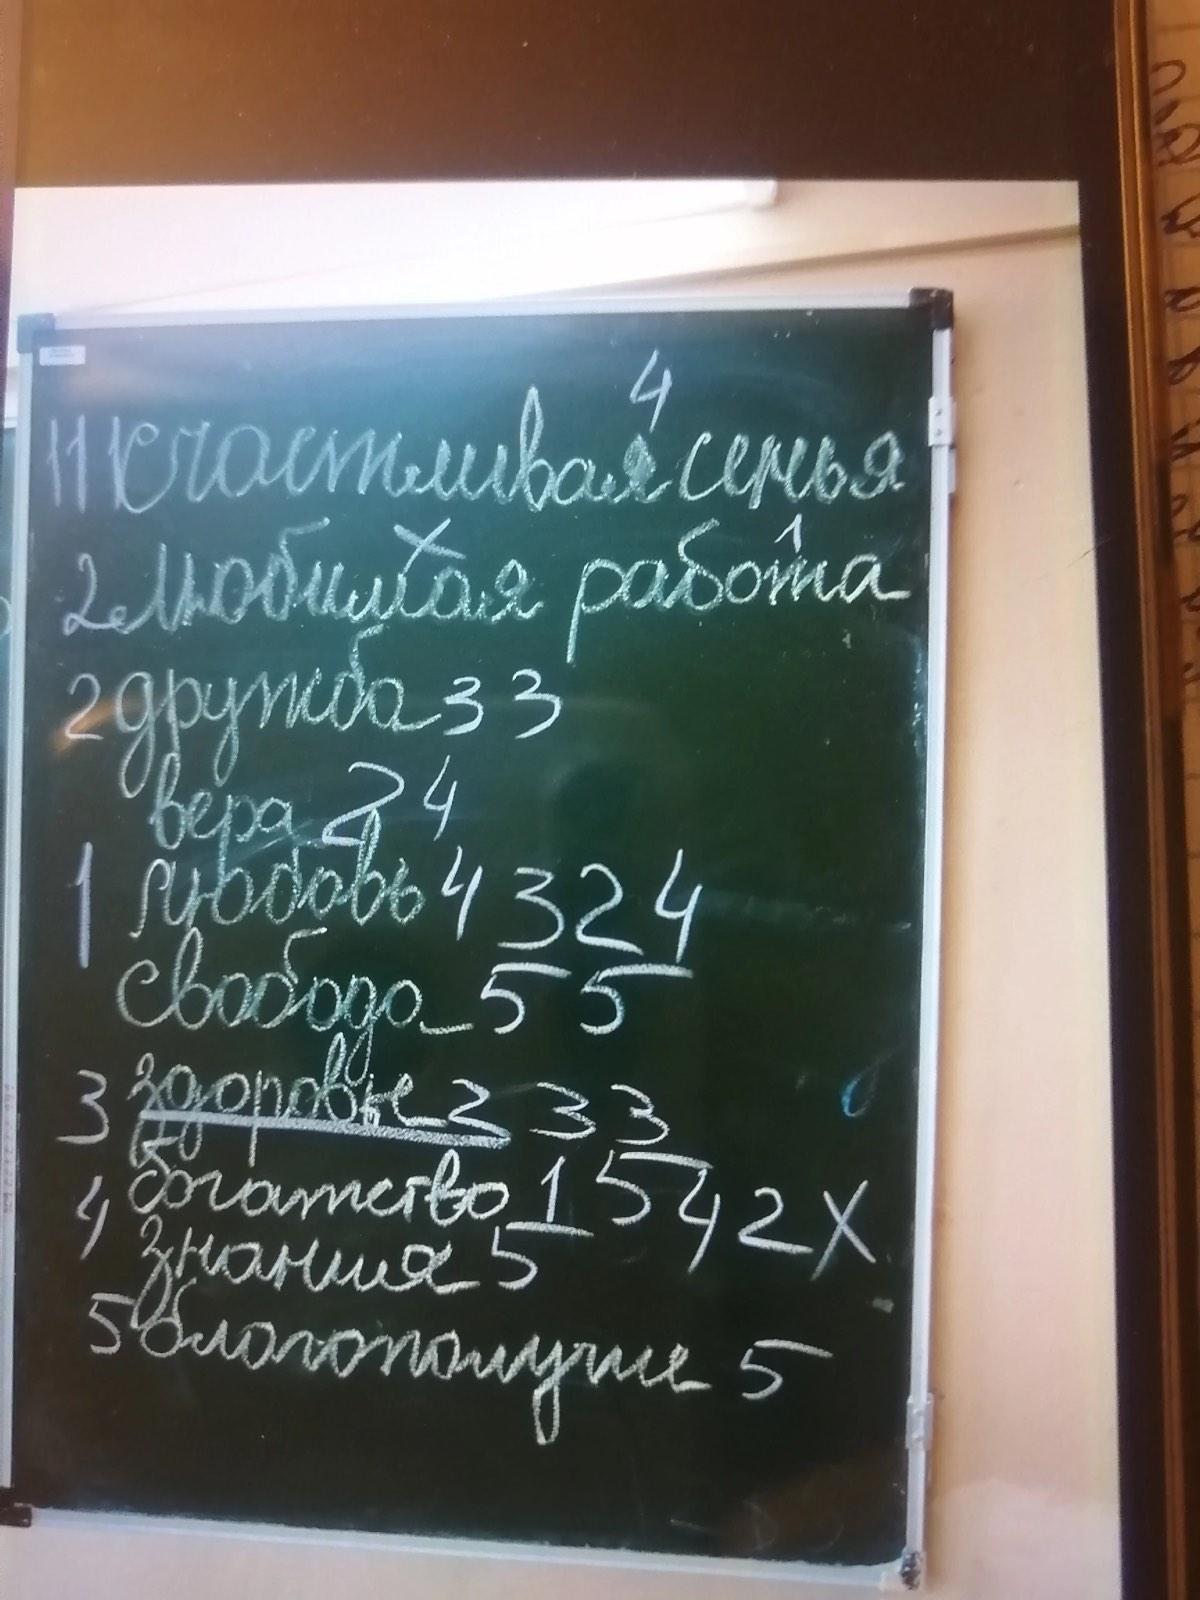 4
111 счастливая семья
х 1
2 любимая работа
2 дружба 3 3
вера 2 4
1 любовь 4 3 2 4
свобода 5 5
3 здоровье 2 3 3
4 богатство 1 5 4 2 X
знания 5
5 благополучие 5